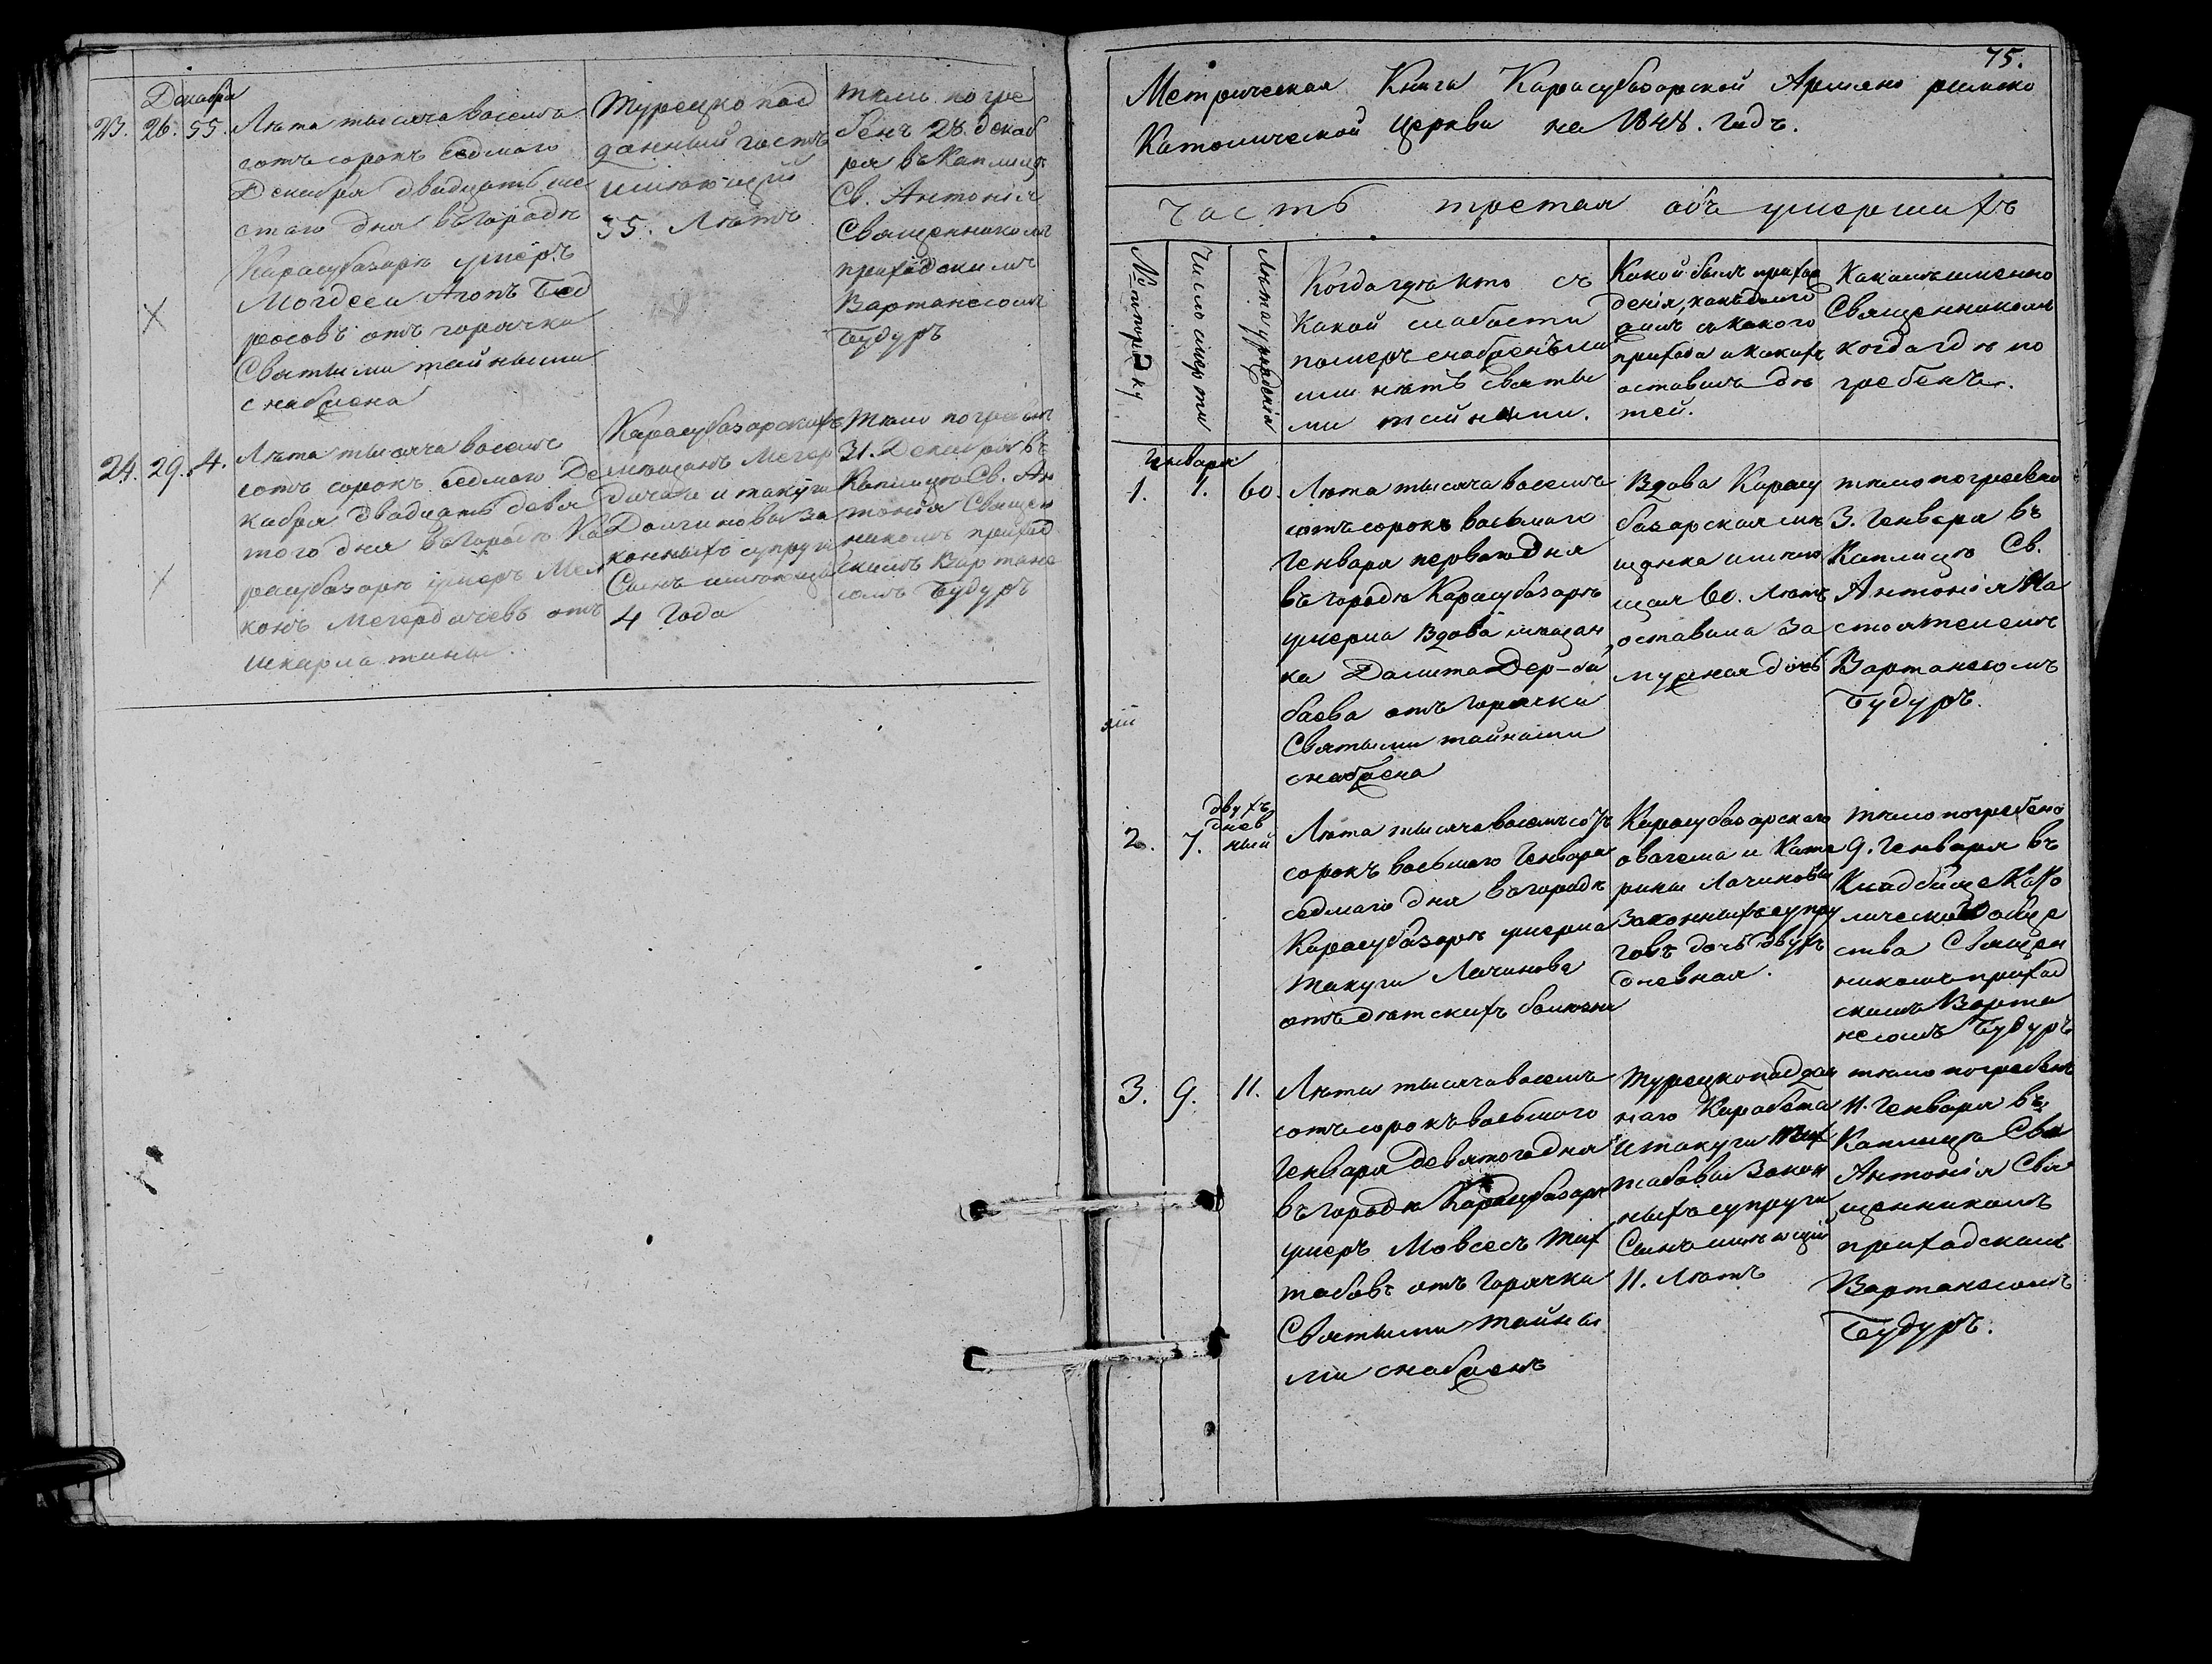 Декабря
23. 26. 55. Лѣта тысяча восемь
сотъ сорокъ седмаго
Декабря двадцать ше
стаго дня въ городѣ
Карасубазарѣ умеръ
Могдеси Агопъ Бед
росовъ отъ горячки
Святыми тайными
снабжена
Турецко под
данный гость
имѣющій
55. Лѣтъ
тѣло погре
бенъ 28. декаб
ря въ Каплицѣ
Св. Антонія
Священникомъ
приходскимъ
Вартанесомъ
Будуръ
24. 29. 4. Лѣта тысяча восемь
сотъ сорокъ седмаго Де
кабря двадцать девя
того дня въ городѣ Ка
расубазарѣ умеръ Мел
конъ Мегердичевъ отъ
шкарлатины.
Карасубазарскихъ
мѣщанъ Мегер
дича и такуги
законныхъ супруги
Сынъ имѣющій
4 года
Тѣло погребенъ
31. Декабря въ
Каплицѣ Св. Ан
тонія Священ
никомъ приход
скимъ Вартане
сомъ Будуръ
75.
Метрическая Книга Карасубазарской Армено римско
Католической Церкви на 1848. годъ.
Часть третая объ умершихъ
№ по порядку
Число смерти
Лѣта урожденія
Когда гдѣ кто съ
какой слабости
померъ снабженъ ли
или нѣтъ святы
ми тайнами.
Какой былъ прихо
денія, какъ долго
жилъ съ какого
прихода и какихъ
оставилъ дѣ
тей.
Какимъ именно
Священникомъ
когда гдѣ по
гребенъ.
Генваря
1. 1. 60. Лѣта тысяча восемь
сотъ сорокъ восьмаго
Генваря перваго Дня
въ городѣ Карасубазарѣ
умерла вдова мѣщан
ка Далита Дер-ба
баева отъ Горячки
Святыми тайнами
снабжена
Вдова Карасу
базарская мѣ
щанка имѣю
щая 60. Лѣтъ
оставила за
мужная дочь
тѣло погребено
3. Генваря въ
Каплицѣ Св.
Антонія На
стоятелемъ
Вартанесомъ
Будуръ.
2. 7. двухъ
днев
ный
Лѣта тысяча восемьсотъ
сорокъ восьмаго Генваря
седмаго дня въ городѣ
Карасубазарѣ умерла
Такуги Лачинова
отъ дѣтскихъ болѣзни
Карасубазарскаго
овагема и Кате
рины Лачиновы
Законныхъ супру
говъ дочь двухъ
дневная.
тѣло погребено
9. Генваря въ
Кладбище Като
лической обще
ства Священ
никомъ приход
скимъ Варта
несомъ Будуръ
3. 9. 11. Лѣта тысяча восемь
сотъ сорокъ восьмаго
Генваря девятого дня
въ городѣ Карасубазарѣ
умеръ Мовсесъ Тих
табовъ отъ Горячки
Святыми тайны
ми снабженъ
Турецкоподдан
наго Карабета
и такуги Тих
табовы Закон
ныхъ супруги
Сынъ имѣющій
11. Лѣтъ
тѣло погребенъ
11. Генваря въ
Каплицѣ Св.
Антонія Свя
щенникомъ
приходскимъ
Вартанесомъ
Будуръ.